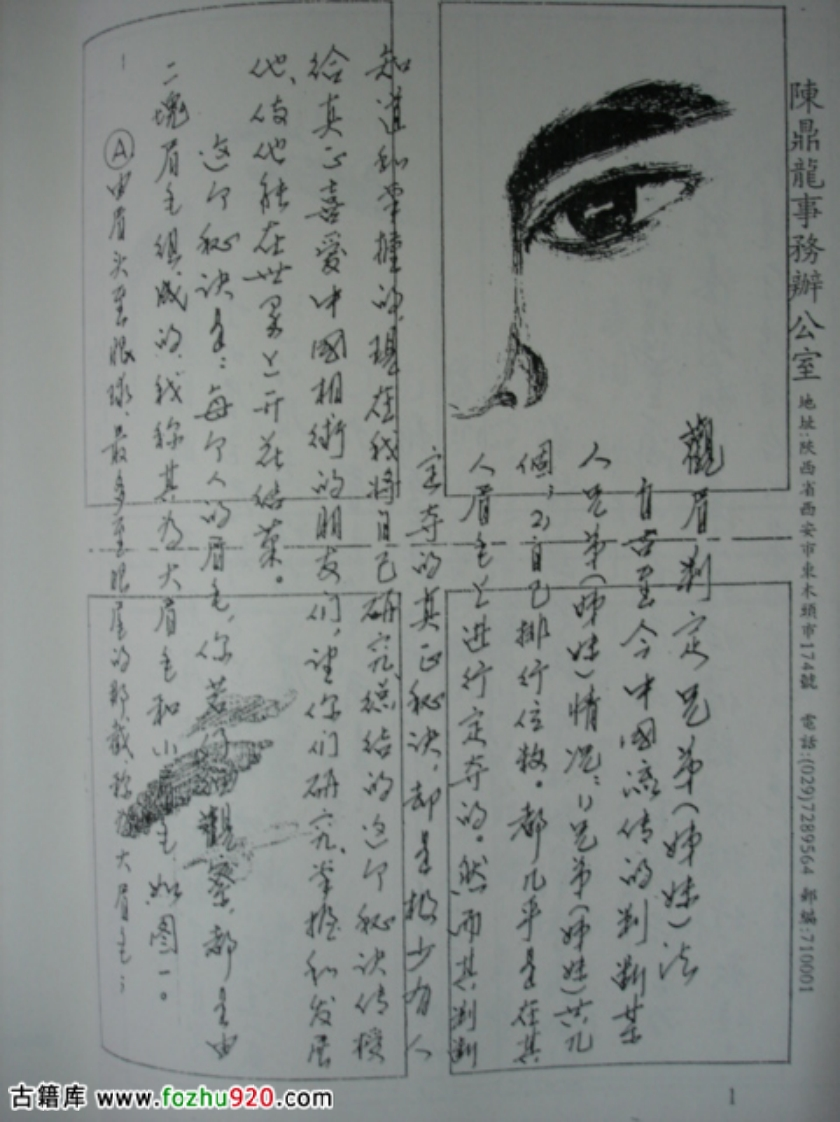 陳鼎龍事務辦公室 地址:陝西省西安市東木頭市174號 電話:(029)7289564 郵編:710001
觀眉判定兄弟(姊妹)法
自古至今中国流传的判断某
人兄弟(姊妹)情况:1)兄弟(姊妹)共几
個;2)自己排行位数。都几乎是在其
人眉毛上进行定夺的。然而其判断
定夺的真正秘诀,却是极少有人
知道和掌握的,现在我将自己研究、总结的这个秘诀传授
给真正喜爱中國相術的朋友们,望你们研究、掌握和发展
他、使他能在世界上开花结菓。
这个秘诀是:每个人的眉毛,你若仔细觀察,都是由
二塊眉毛组成的,我称其为大眉毛和小眉毛如图一。
Ⓐ由眉头至眼球、最多至眼尾的那截、称为大眉毛;
1
古籍库 www.fozhu920.com